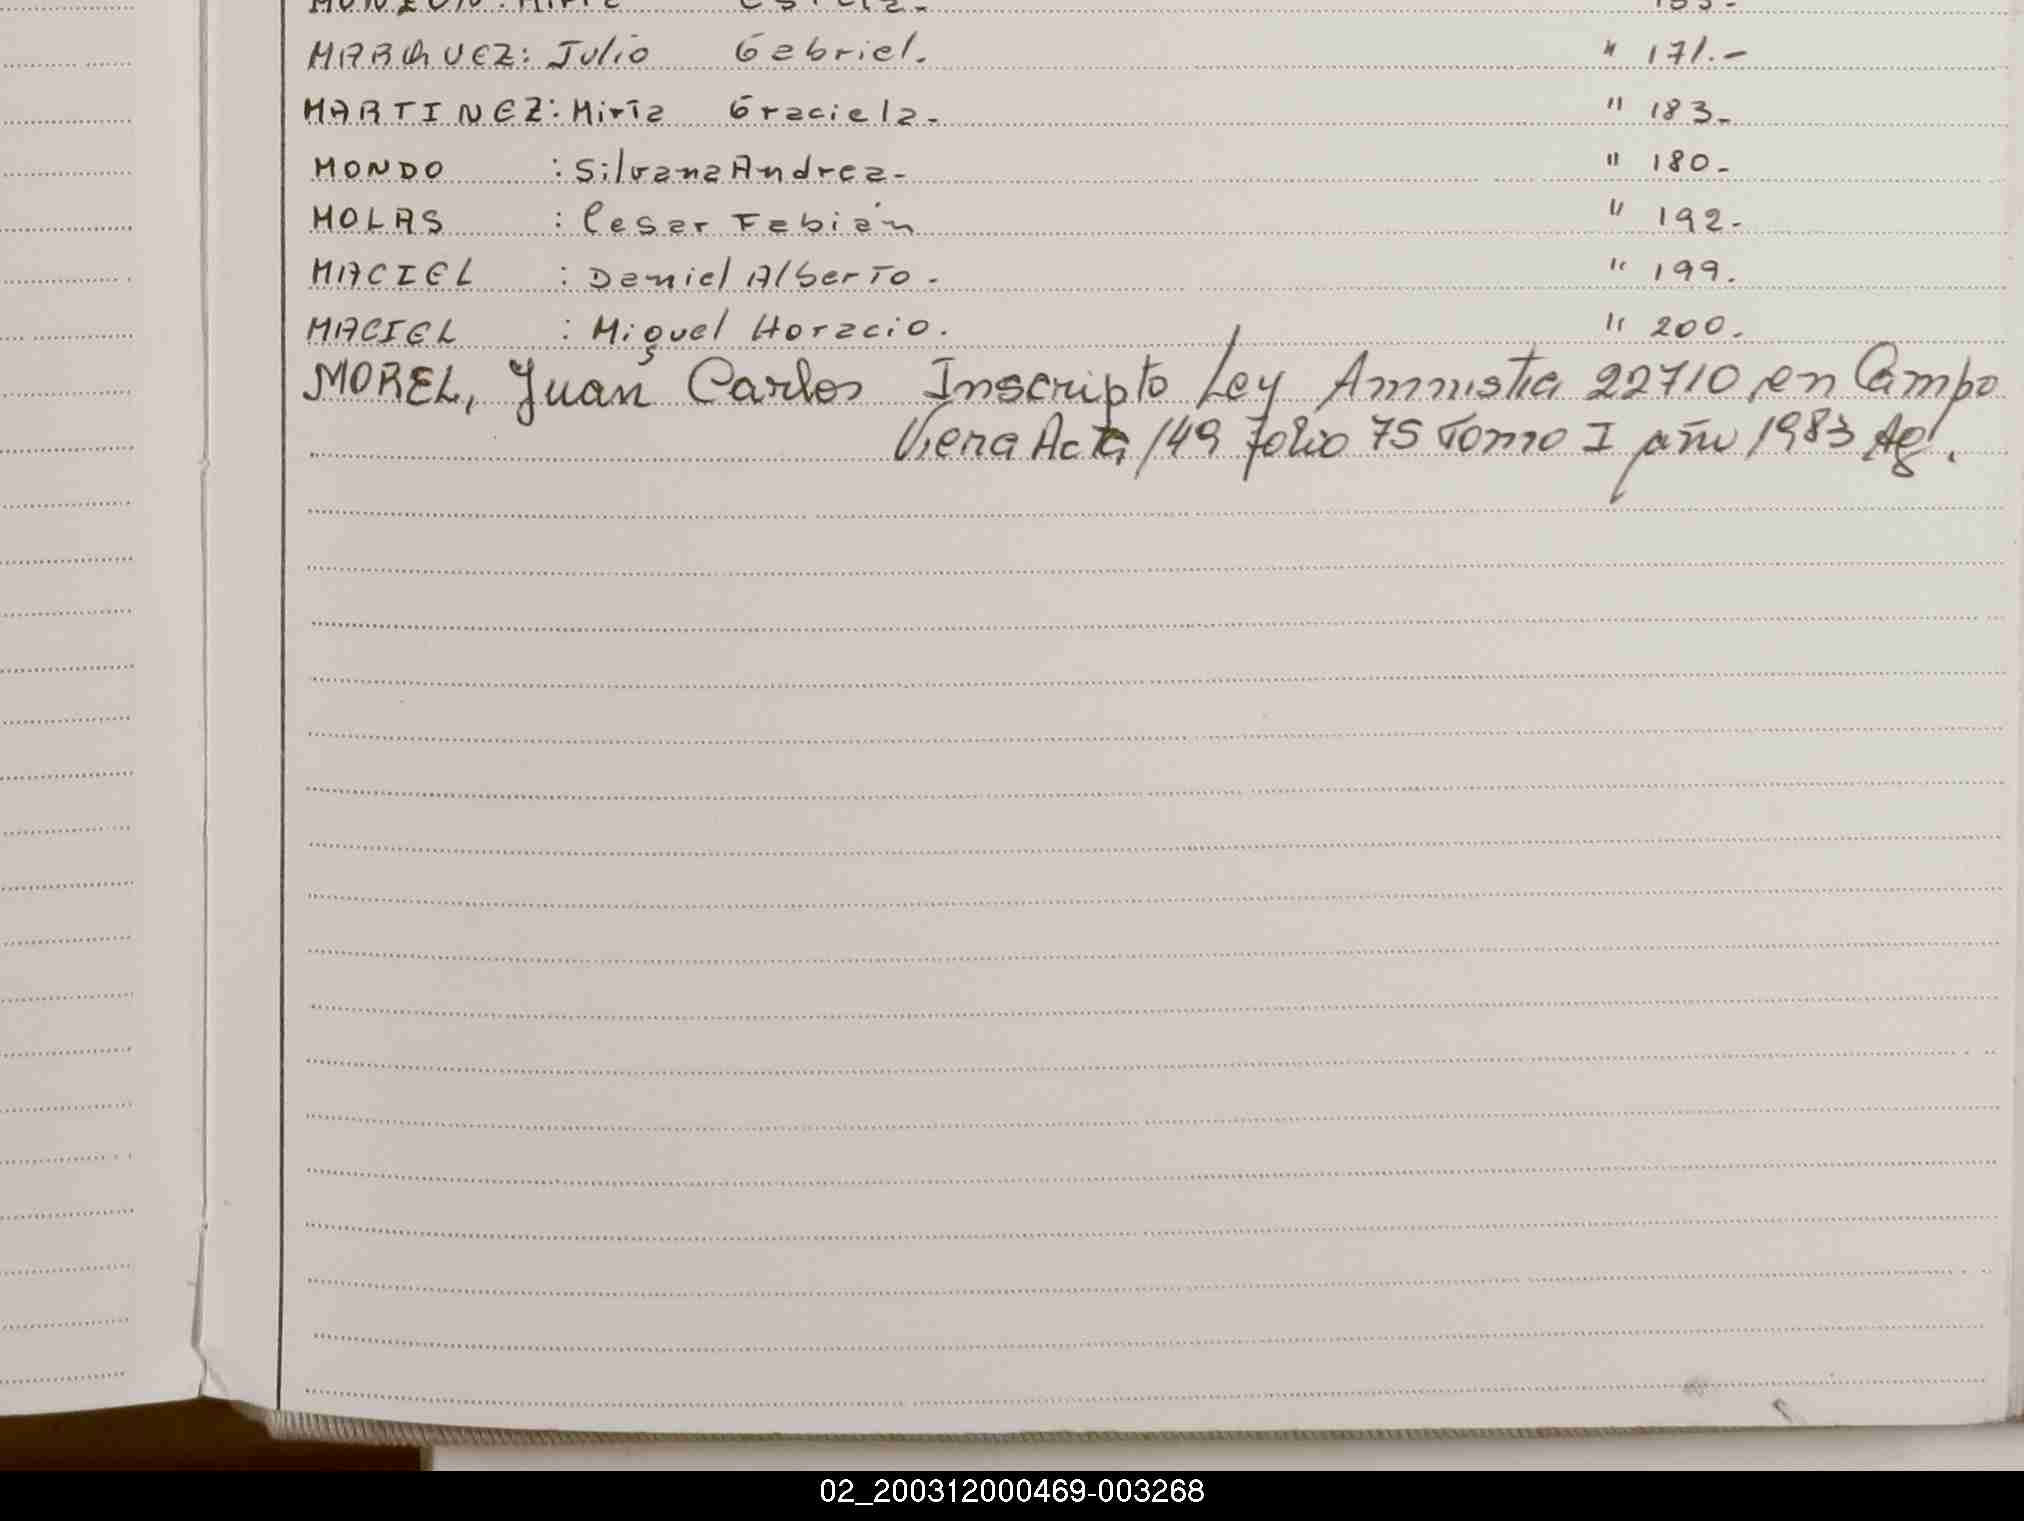 MARQUEZ: Julio Gabriel. " 171.-
MARTINEZ: Mirta Graciela- " 183-
MONDO : Silvana Andrea- " 180-
MOLAS : Cesar Fabián " 192-
MACIEL : Daniel Alberto. " 199.
MACIEL : Miguel Horacio. " 200.
MOREL, Juan Carlos Inscripto Ley Amnistia 22710 en Campo
Viera Acta 149 Folio 75 Tomo I año 1983
02_200312000469-003268